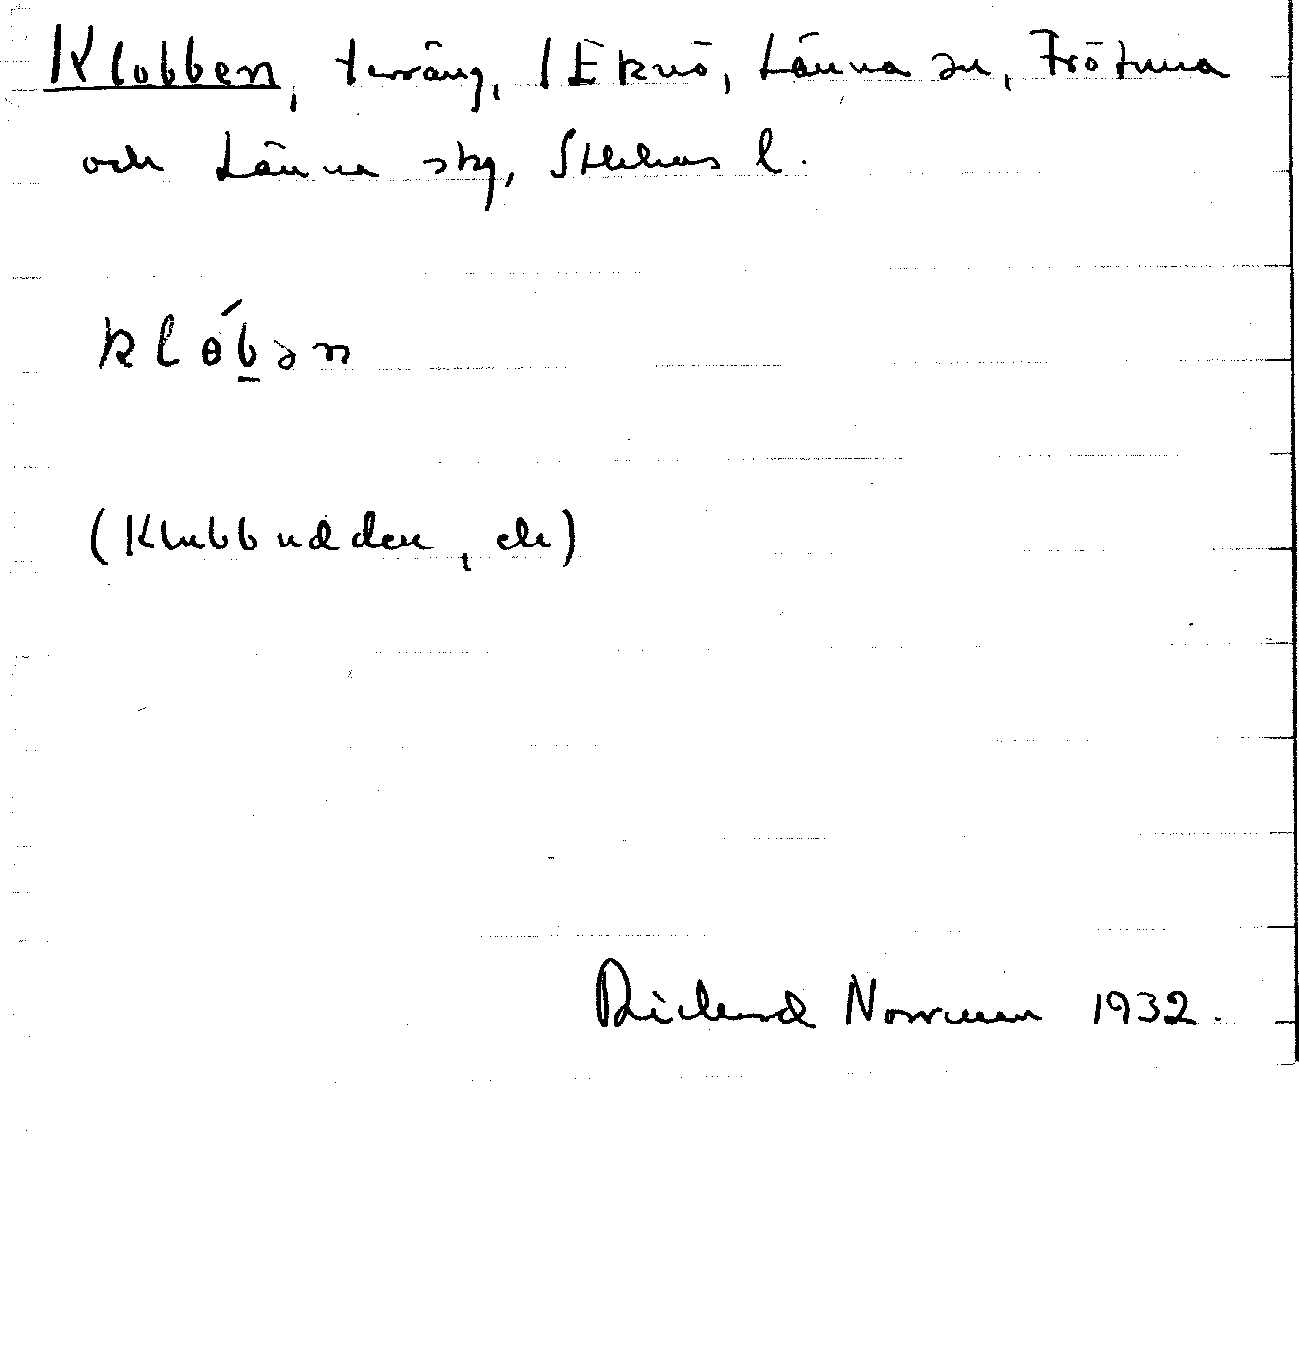 Klobben, terräng, 1 Eknö, Länna sn, Frötuna
och Länna skg, Sthlms l.
klɵ́b̲ən
(Klubbudden, ek)
Richard Norrman 1932.